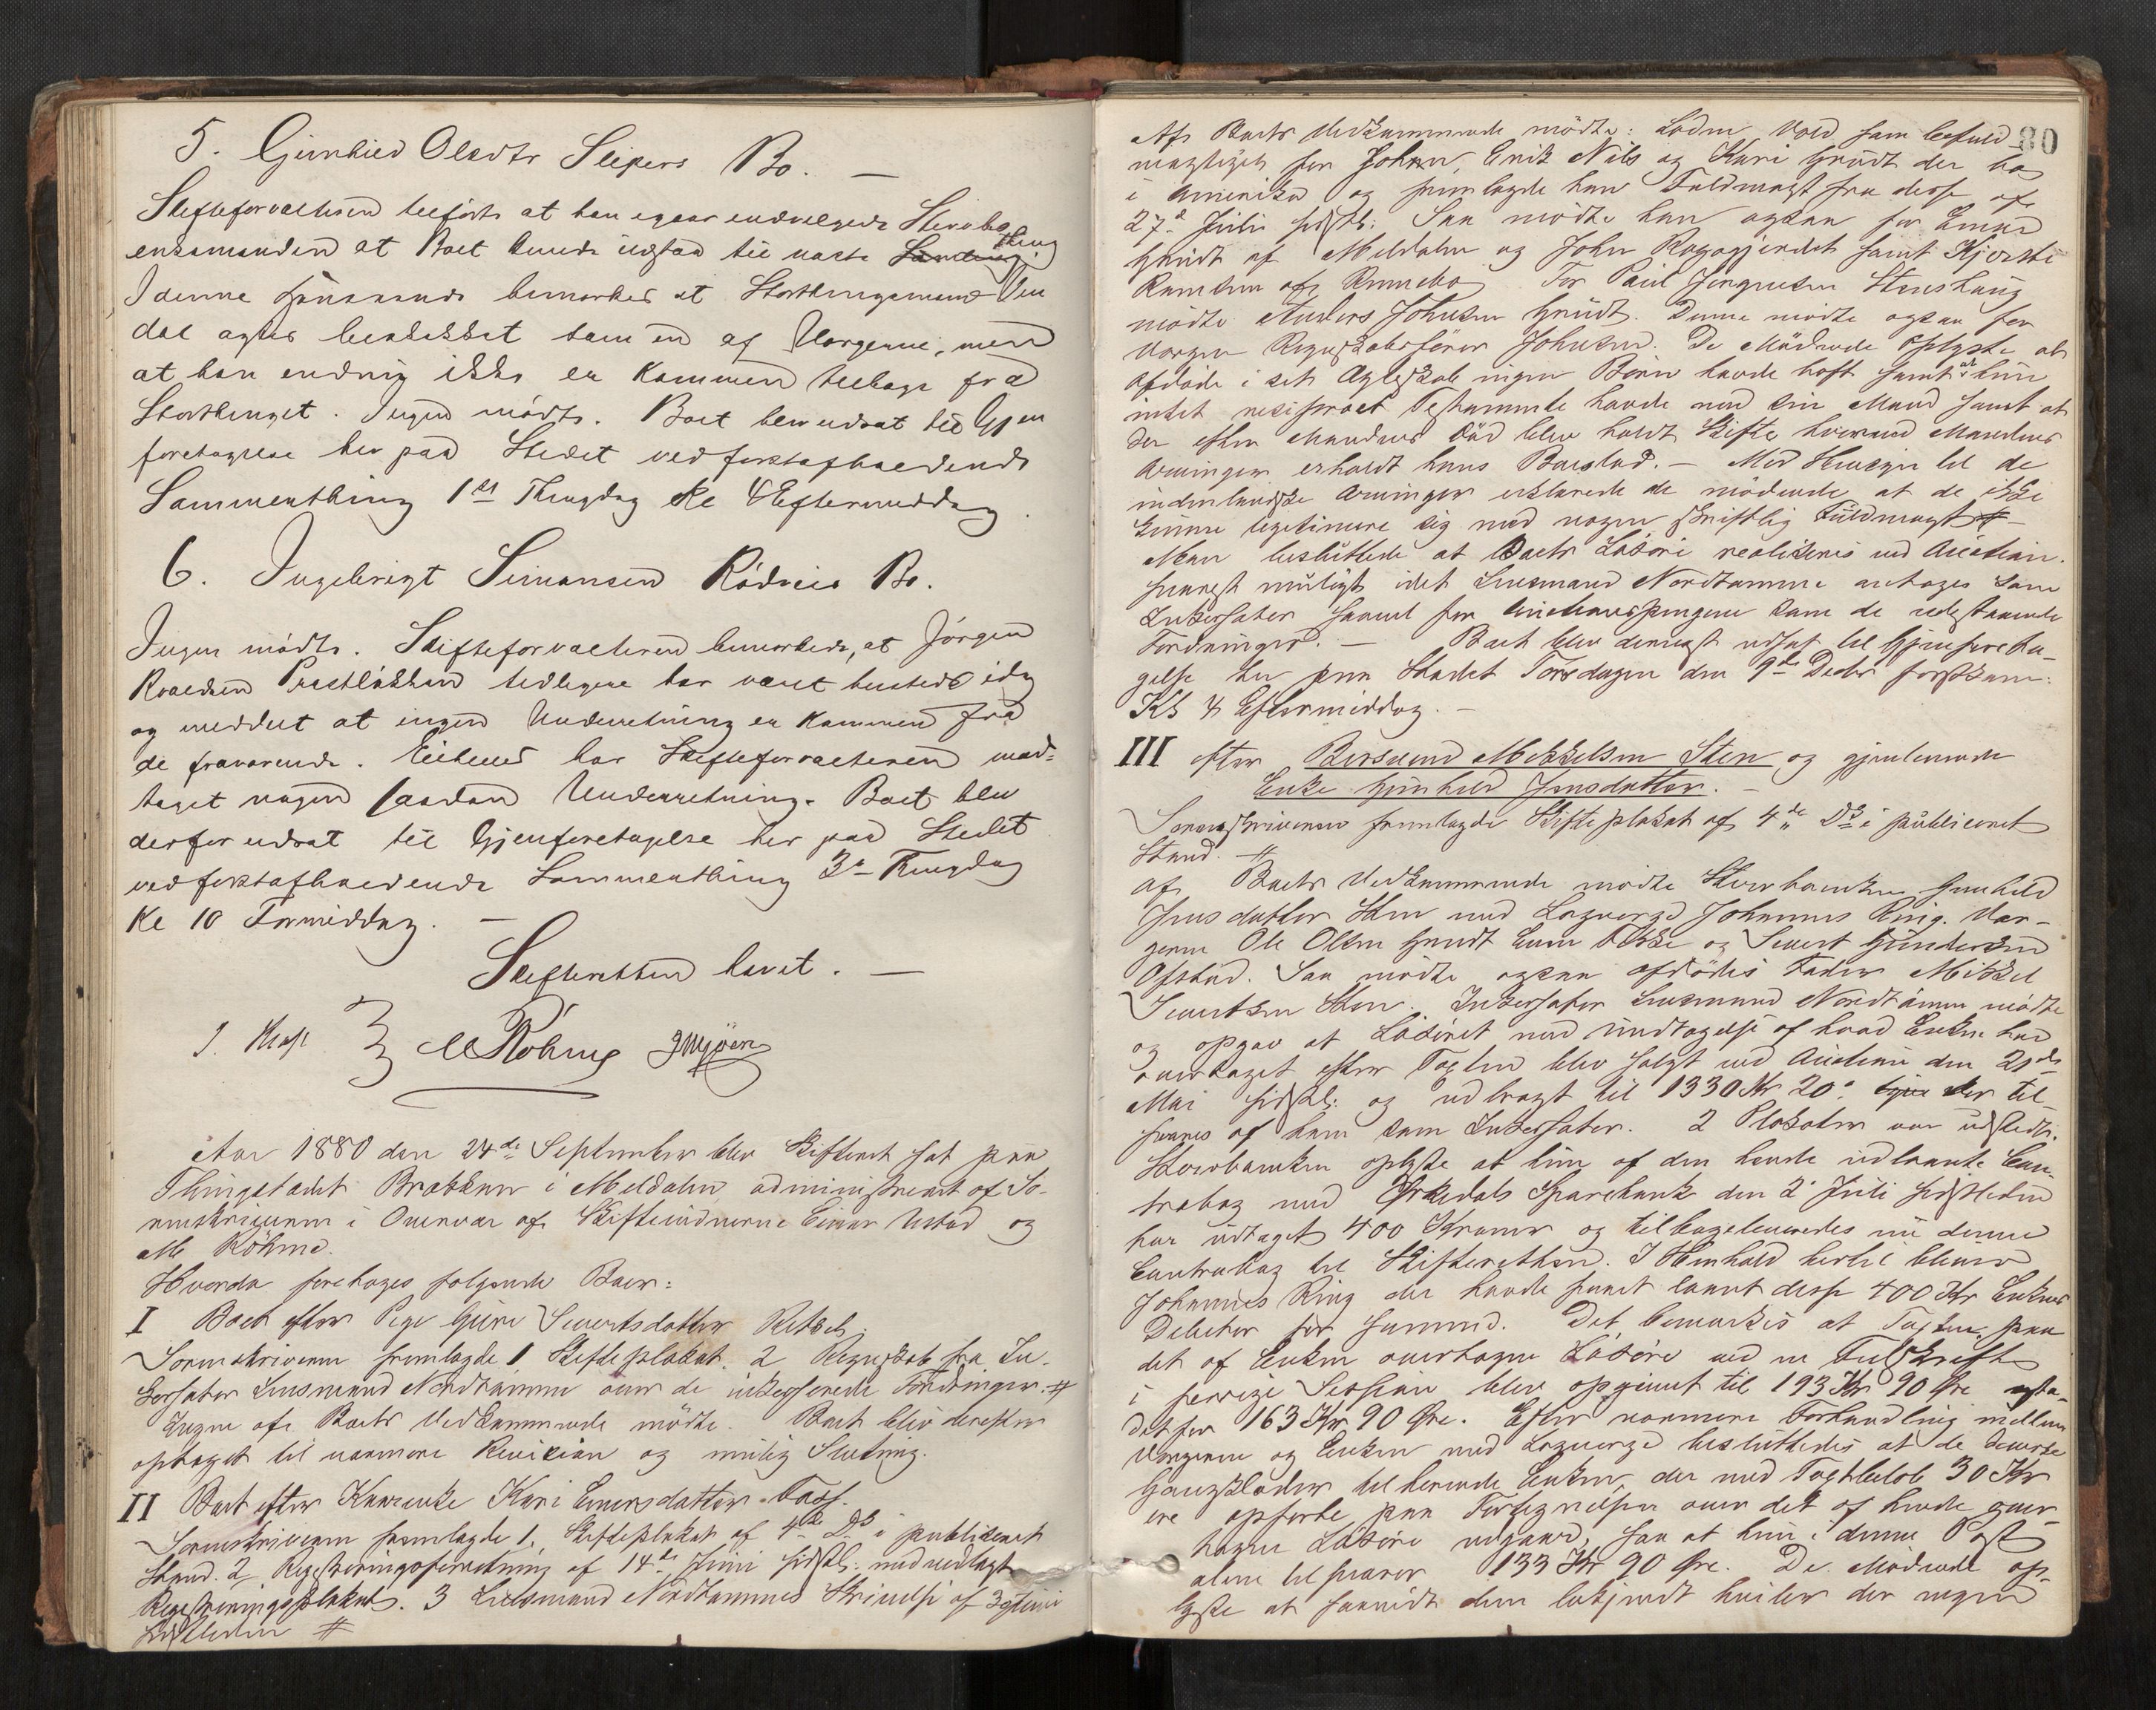 5. Gunhild Olsdtr Slipers Bo. —
Skifteforvalteren tilførte at han igaar underrettede Stervbo-
enkemanden at Boet burde udstaa til næste Samling thing
I denne Henseende bemærkes at Storthingsmand
dal agtes beskikket som en af Vørgerne, men
at han endnu ikke er kommen tilbage fra
Storthinget. Ingen mødte. Boet blev udsat til Gjen
foretagelse her paa Stedet ved førstafholdende
Sommerthing 1ste Thingdag Kl 4 Eftermiddag.
6. Ingebrigt Simonsen Rødnes Bo.
Ingen mødte. Skifteforvalteren bemærkede, at Jørgen
Roaldsen Præstløkken tidligere har været tilstede idag
og meddelt at ingen Underretning er kommen fra
de fraværende. Heller har Skifteforvalteren mod-
taget nogen saadan Underretning. Boet blev
derfor udsat til Gjenforetagelse her paa Stedet
ved førstafholdende Sommerthing 3de Thingdag
Kl 10 Formiddag. —
Skifteretten hævet. —
J. M Röhme
Aar 1880 den 24de September blev Skifteret sat paa
Thingstedet Brattaas i Meldalen administreret af So-
renskriveren i Overvær af Skiftevidnerne Einar Ustad og
M. Röhme.
Hvorda foretoges følgende Boer:
I Boet efter Pige Guri Sivertsdatter Retsch.
Sorenskriveren fremlagde 1. Skifteplakat. 2 Regnskab fra In-
kassator Lensmand Nordtømme over de inkasserede Fordringer. #
Ingen af Boets Vedkommende mødte. Boet blev derefter
optaget til nærmere Revision og mulig Slutning.
II Boet efter Kaarenke Kari Einersdatter Foss.
Sorenskriveren fremlagde 1. Skifteplakat af 4de Ds i publiceret
Stand. 2 Registreringsforretning af 14de Juni sidstl. med vedlagt
Registreringsplakat. 3 Lensmand Nordtømmes Skrivelse af 30 Juni
sidstleden #
80
Af Boets Vedkommende mødte: Vold som befuld-
mægtiget for John, Erik Nils og Kari Gründt der bo
i Amerika og fremlagde han Fuldmagt fra disse af
27de Juli sidstl. Saa mødte han ogsaa for Einar
Gründt af Meldalen og John Rogogjerdet samt Kjersti
af Rennebo. For Paul Jørgensen Stenshaug
mødte Anders Johnsen Gründt. Denne mødte ogsaa for
Vørgen Regnskabsfører Johnsen. De Mødende oplyste at
Afdøde i sit Ægteskab ingen Børn havde havt samt at hun
intet reciproct Testamente havde med sin Mand samt at
der efter Mandens Død blev holdt Skifte hvorved Mandens
Arvinger erholdt hans Boeslod. — Med Hensyn til de
indenlandske Arvinger erklærede de mødende at de ikke
kunne legitimere sig med nogen skriftlig Fuldmagt #
Man besluttede at Boets Løsøre realiseres ved Auction
snarest muligt idet Lensmand Nordtømme antages som
Inkassator saavel for Auctionspengene som de udestaaende
Fordringer. — Boet blev dernæst udsat til Gjenforeta-
gelse her paa Stedet Torsdagen den 9de Decbr førstkom:
Kl 4 Eftermiddag. —
III efter Bersvend Mekkelsen Sten og gjenlevende
Enke Gunhild Jonsdatter. —
Sorenskriveren fremlagde Skifteplakat af 4de Ds i publiceret
Stand. #
Af Boets Vedkommende mødte Stervboenken Gunhild
Jonsdatter Sten med Laugverge Johannes Ring. Vør-
gerne Ole Olsen Grundt Eum og Sivert Gundersen
Ofstad. Saa mødte ogsaa afdødes Fader Mikkel
Sivertsen Sten. Inkassator Lensmand Nordtømme mødte
og opgav at Løsøret med Undtagelse af hvad Enken har
overtaget efter Taxten blev solgt ved Auction den 21de
Mai sidstl. og udbragt til 1330 Kr 20 ø der til
svares af ham som Inkassator. 2 Plakater var udstedt.
Stervboenken oplyste at hun af den hende udlaante Con-
trabog med Ørkedals Sparebank den 2de Juli sidstleden
har udtaget 400 Kroner og tilbageleveredes nu denne
Contrabog til Skifteretten. I Henhold hertil blever
Johannes Ring der havde faaet laant disse 400 Kr Enkens
Debitor for samme. Det bemærkes at Taxten paa
det af Enken overtagne Løsøre ved en Feilskrift
i forrige Session blev opgivet til 193 Kr 90 Øre istæ-
detfor 163 Kr. 90 Øre. Efter nærmere Forhandling mellem
Vørgerne og Enken med Laugverge besluttedes at de diverse
Gangklæder tilhørende Enken, der med Taxtbeløb 30 Kr
ere opførte paa Fortegnelsen over det af hende over-
tagne Løsøre udgaar, saa at hun i denne Post
alene tilsvarer 133 Kr 90 Øre. De Mødende op-
lyste at saavidt dem bekjendt hviler der nogen